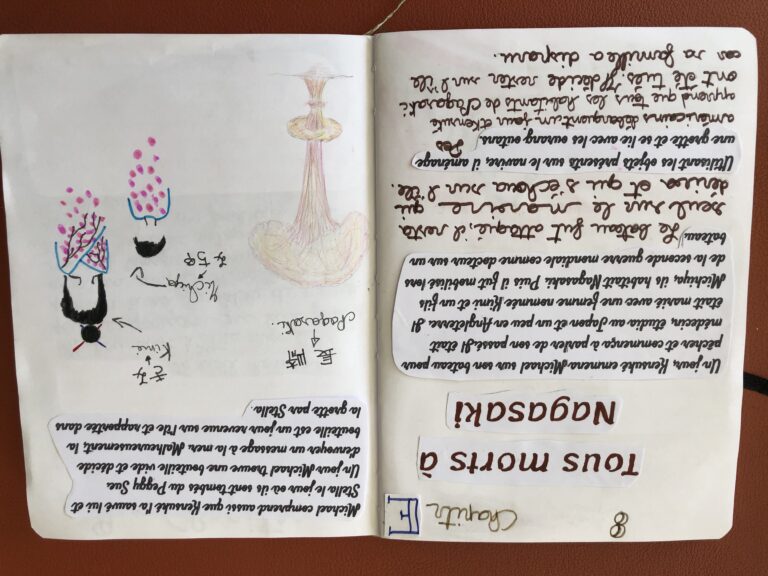 8
Chapitre
F
Tous morts à
Nagasaki
Un jour, Kensuké emmena Michael sur son bateau pour
pêcher et commença à parler de son passé. Il était
médecin, étudia au Japon et un peu en Angleterre. Il
était marié avec une femme nommée Kimi et un fils
Michiya, ils habitait Nagasaki. Puis il fut mobilisé lors
de la seconde guerre mondiale comme docteur sur un
bateau.
Le bateau fut attaqué, il resta
seul sur le qui
dériva et qui s'échoua sur l'île.
Utilisant les objets présents sur le navire, il aménage
une grotte et se lie avec les ourang outans. Des
américains débarquent un jour et Kensuké
apprend que tous les habitants de Nagasaki
ont été tués. Il décide rester sur l'île
car sa famille a disparu.
Michael comprend aussi que Kensuké l'a sauvé lui et
Stella le jour où ils sont tombés du Peggy Sue.
Un jour Michael trouve une bouteille vide et décide
d'envoyer un message à la mer. Malheureusement, la
bouteille est un jour revenue sur l'île et rapportée dans
la grotte par Stella.
長崎
Nagasaki
Kimi
Michiya